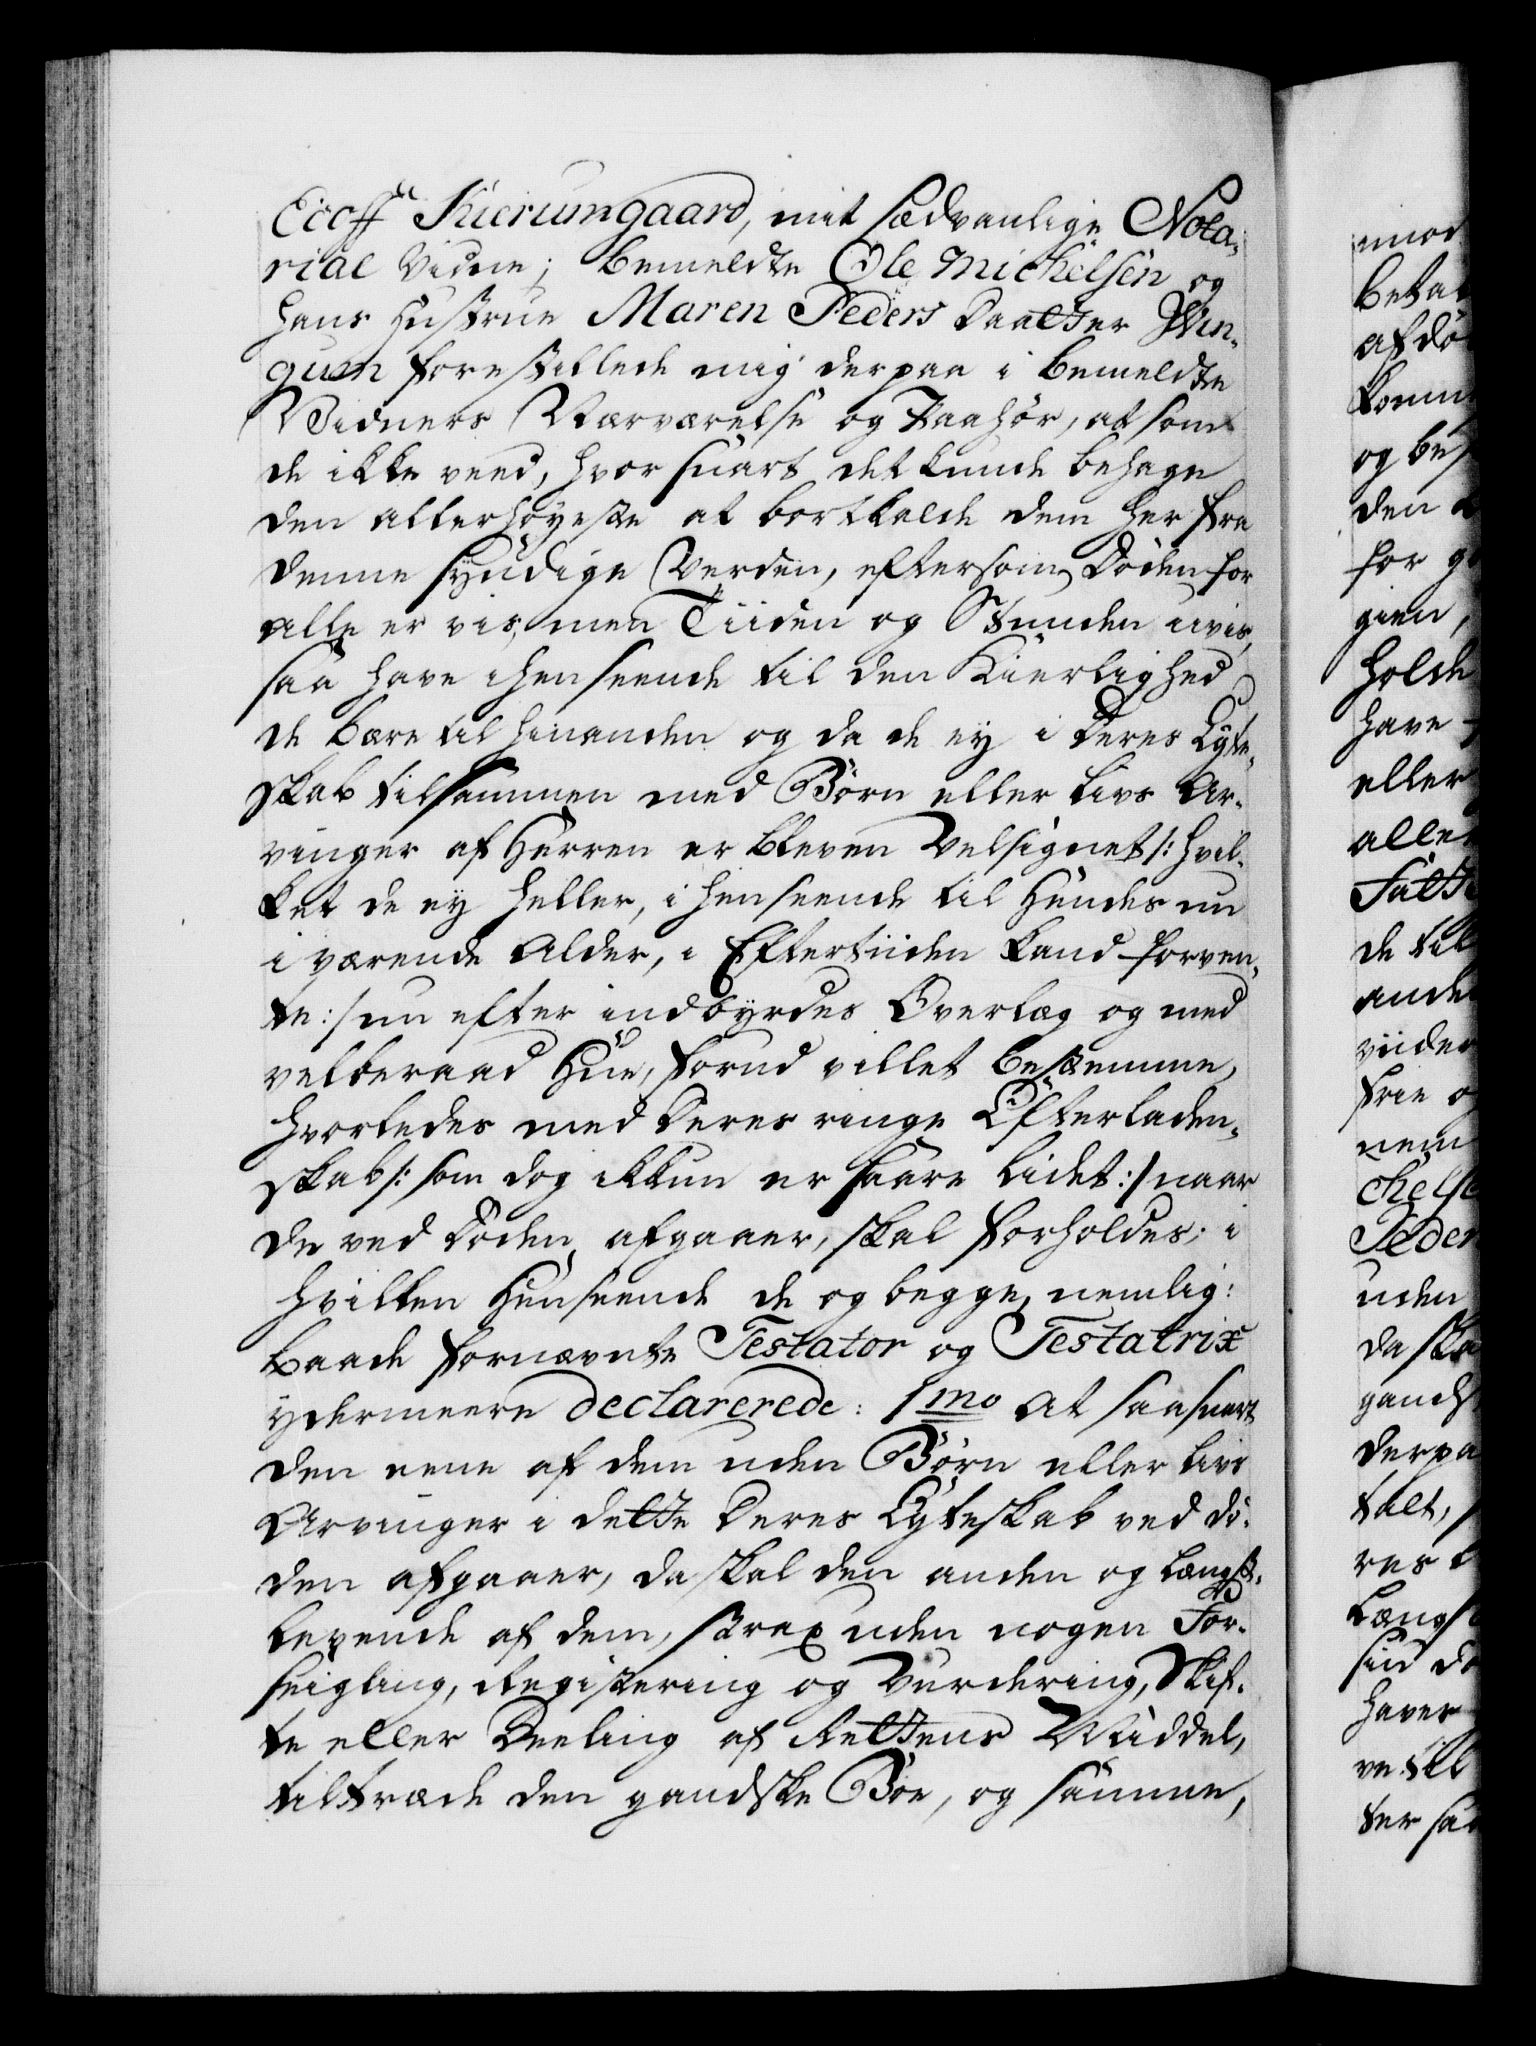 Ecoff Kierumgaard, mit sædvanlige Nota-
rial Vidne; bemeldte Ole Michelsen og
Hans Hustrue Maren Peders Daatter Win-
gum forestillede mig derpaa i bemeldte
Vidners Nærværelse og Paahør, at som
de ikke veed, hvor snart det kunde behage
den allerhøyeste at bortkalde dem her fra
denne syndige Verden, eftersom Døden for
alle er vis, men Tiiden og Stunden uvis,
saa have i henseende til den Kierlighed
de bære til hinanden og da de ey i deres Ægte-
skab tilsammen med Børn eller Livs Ar-
vinger af Herren er bleven Velsignet /: hvil-
ket de ey heller, i henseende til Hendes nu
i værende Alder, i Eftertiiden kand forven-
te :/ nu efter indbyrdes Overlæg og med
velberaad Hue, forud villet bestemme,
hvorledes med deres ringe Efterladen-
skab /: som dog ikkun er saare lidet :/ naar
de ved Døden afgaaer, skal forholdes; i
hvilken Henseende de og begge, nemlig:
baade fornævnte Testator og Testatrix
ydermeere declarerede: 1mo At saasnart
den eene af dem uden Børn eller Livs
Arvinger i dette deres Ægteskab ved Dø-
den afgaaer, da skal den anden og længst-
levende af dem, strax uden nogen For-
seigling, Registering og Vurdering, Skif-
te eller Deeling af Rettens Middel,
tiltræde den gandske Boe, og samme,